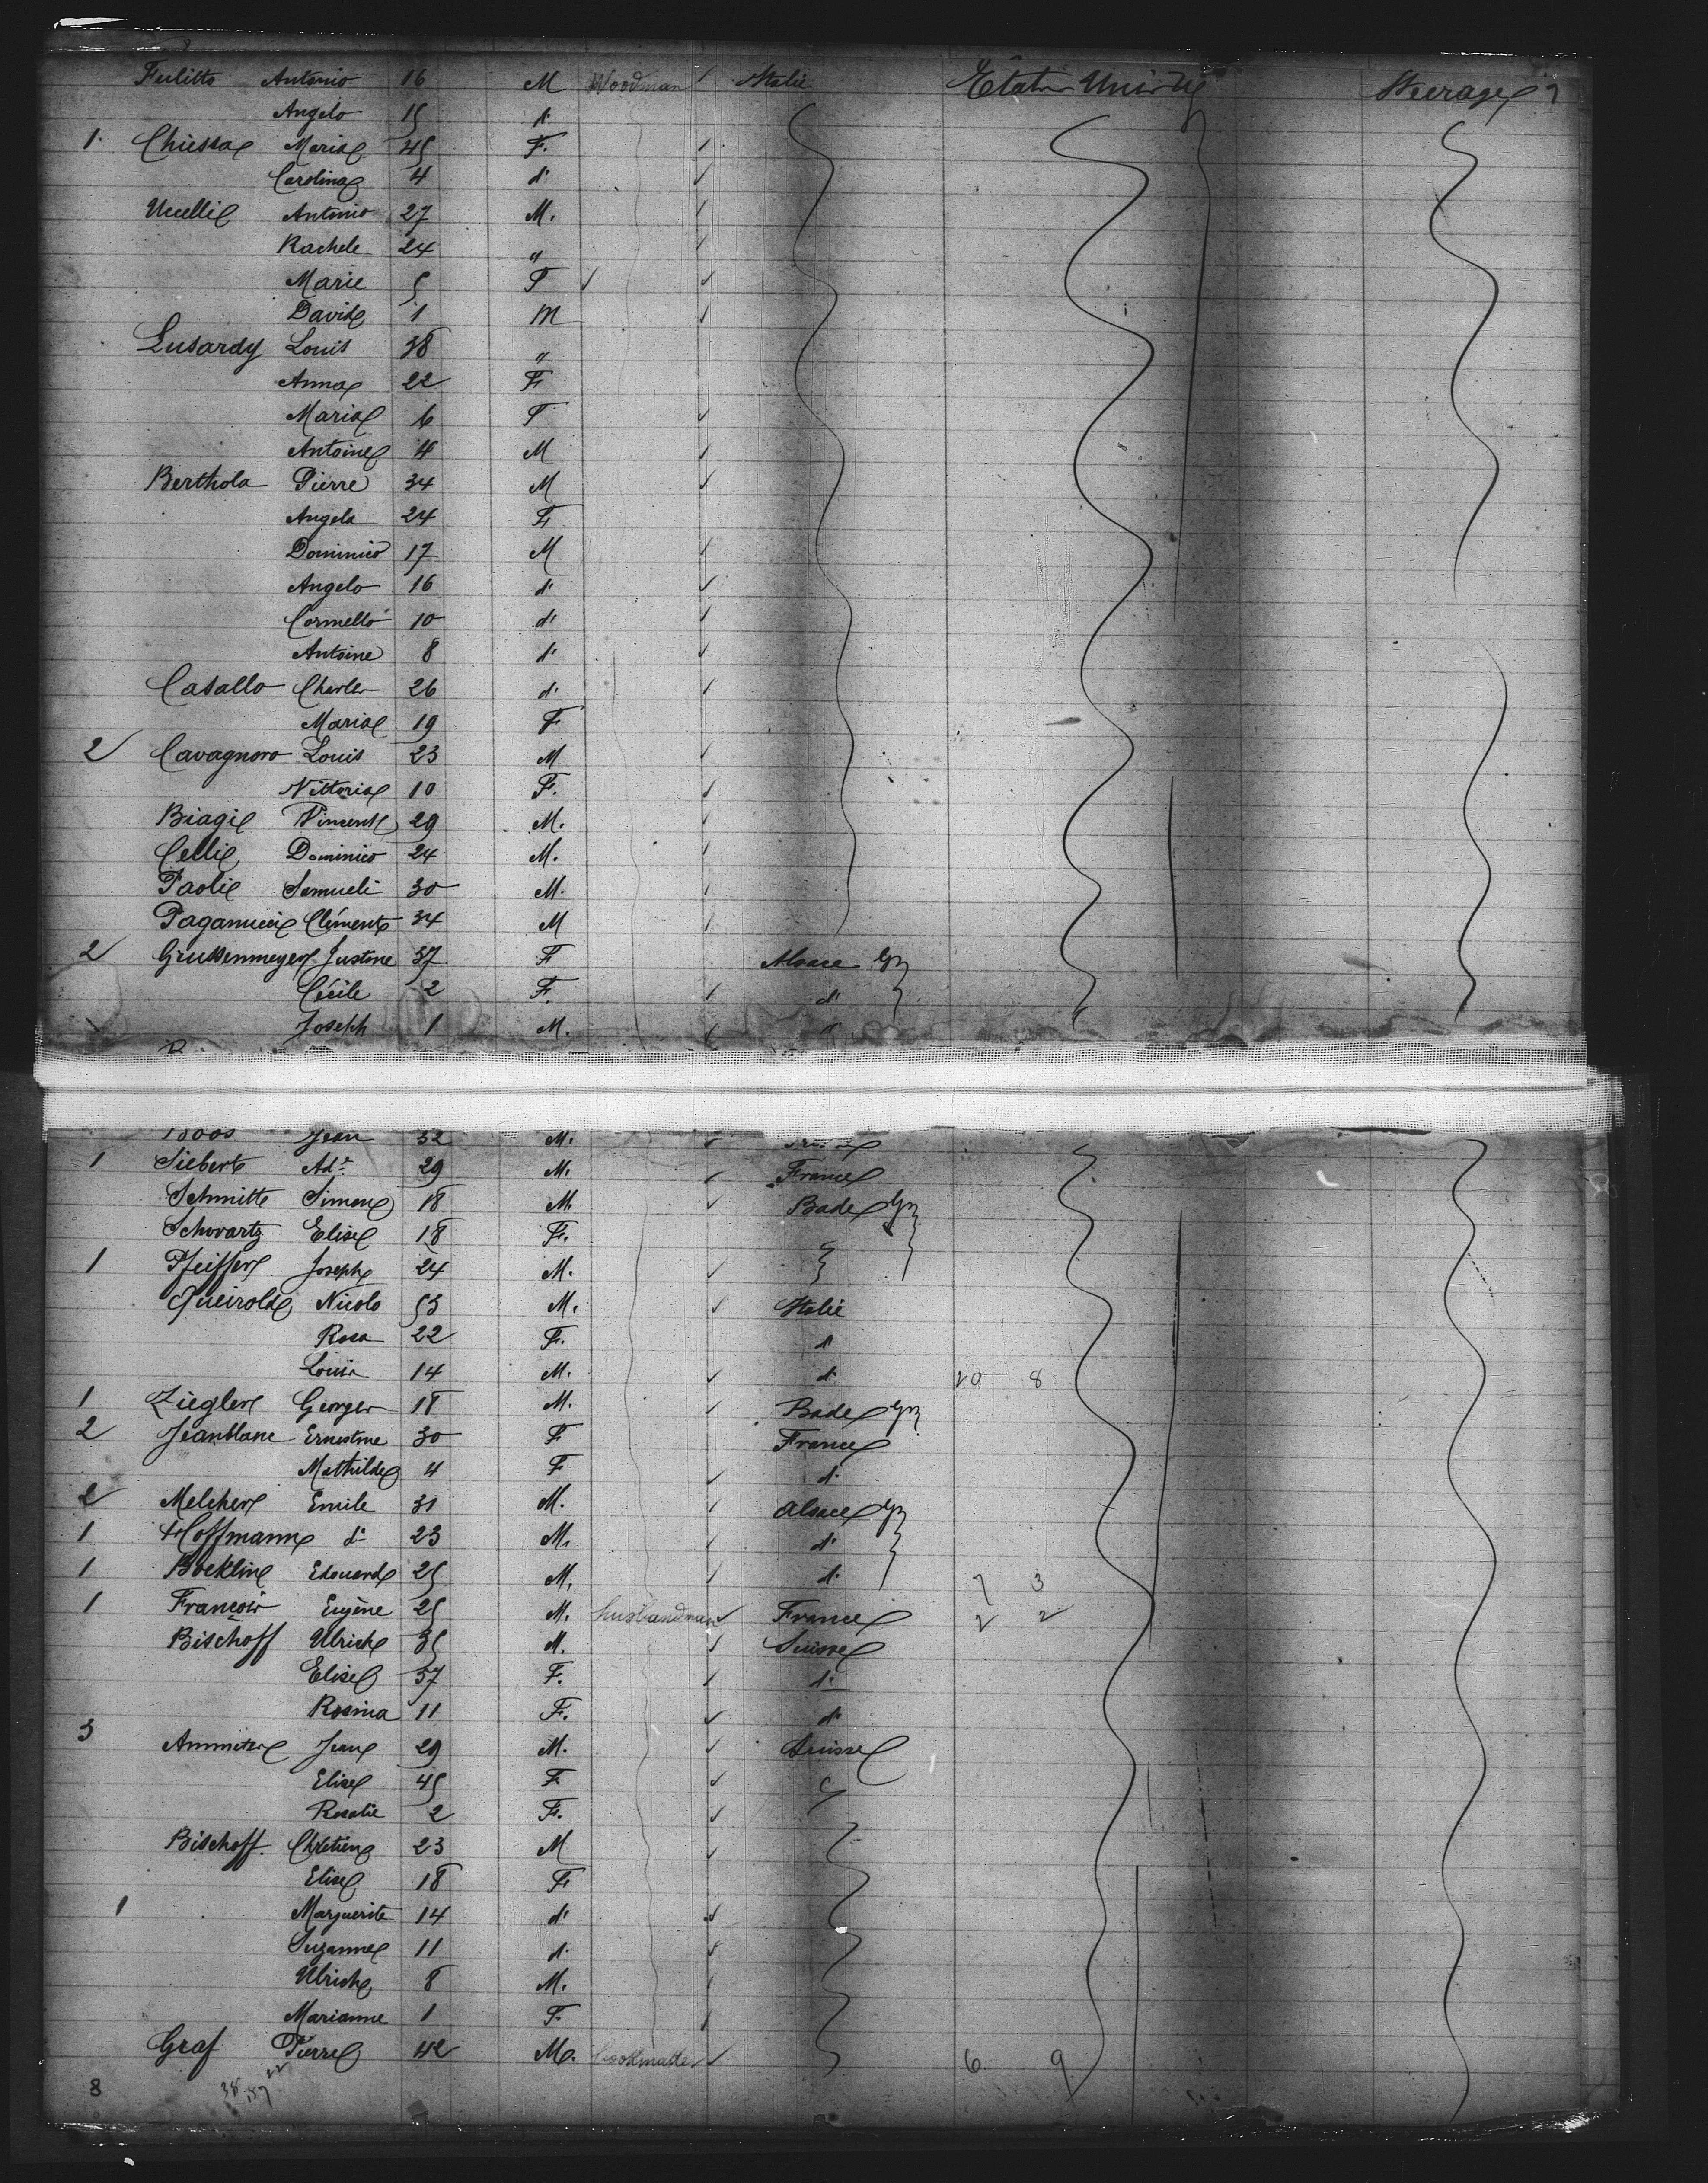 Antonio 16 M Woodman Italie États Unis Steerage
Angelo 15 d°
1. Chiessa Maria 45 F.
Carolina 4 d°
Uccelli Antonio 27 M.
Rachele 24 "
Marie 5 F
David 1 M
Lusardy Louis 38 "
Anna 22 F
Maria 6 F
Antoine 4 M
Berthola Pierre 34 M
Angela 24 F
Dominico 17 M
Angelo 16 d°
Cormello 10 d°
Antoine 8 d°
Casallo Charles 26 d°
Maria 19 F
2 Cavagnoro Louis 23 M
Vittoria 10 F.
Biagi Vincent 29 M.
Celli Dominico 24 M.
Paoli Samueli 30 M.
Paganucci Clément 34 M
2 Grussenmeyer Justine 37 F Alsace Gy
Cécile 2 F. d°
Joseph 1 M.
Jean 32 M.
1 Siebert Ad. 29 M. France
Schmitt Simon 18 M. Bade Gy
Schwartz Elise 18 F.
1 Pfeiffer Joseph 24 M.
Queirolo Nicolo 53 M. Italie
Rosa 22 F. d°
Louis 14 M. d° 20 8
1 Ziegler Georges 18 M. Bade Gy
2 Jeanblanc Ernestine 30 F France
Mathilde 4 F d°
2 Melcher Emile 31 M. Alsace Gy
1 Hoffmann d° 23 M. d°
1 Bocklin Edouard 25 M. d° 7 3
1 François Eugène 25 M. husbandman France 2 2
Bischoff Ulrich 35 M. Suisse
Elise 37 F. d°
Rosina 11 F. d°
3
Jean 29 M. Suisse
Elise 45 F
Rosalie 2 F.
Bischoff Chrétien 23 M
Elise 18 F
1 Marguerite 14 d°
Suzanne 11 d°
Ulrich 8 M.
Marianne 1 F.
Graf Pierre 42 M. 6 9
8